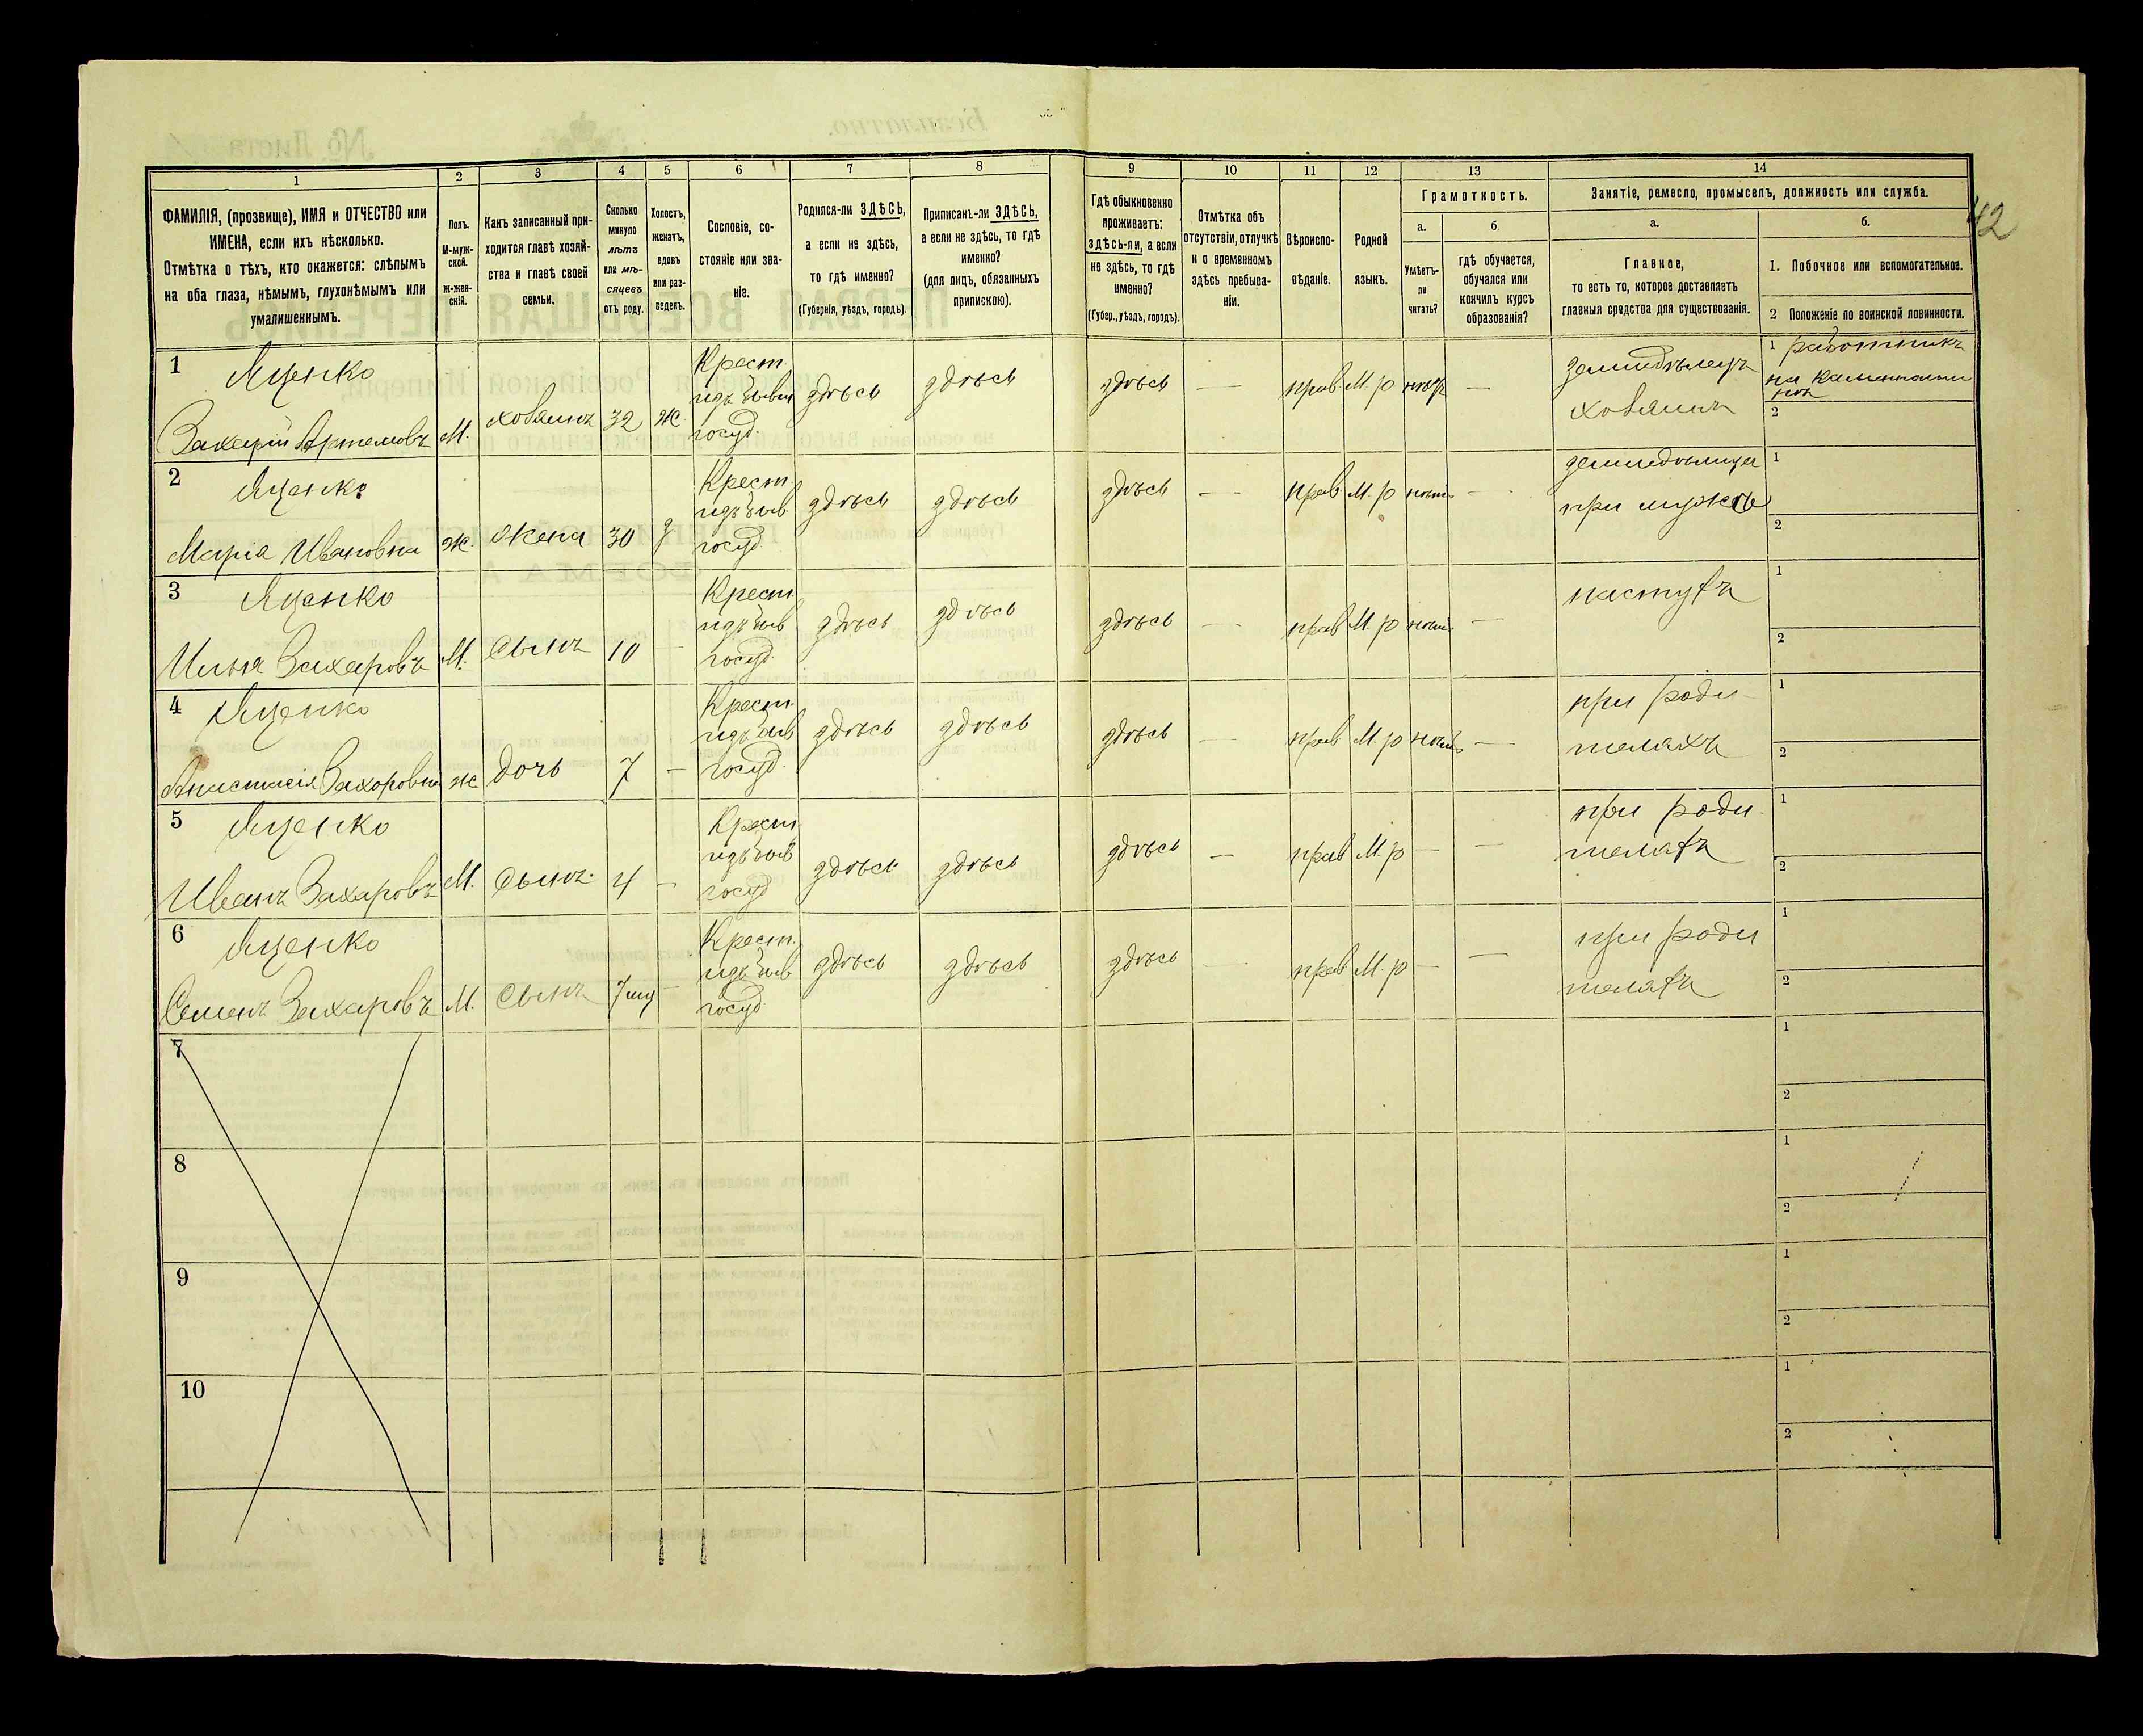 42
1 2 3 4 5 6 7 8 9 10 11 12 13 14
ФАМИЛІЯ, (прозвище), ИМЯ и ОТЧЕСТВО или
ИМЕНА, если ихъ нѣсколько.
Отмѣтка о тѣхъ, кто окажется: слѣпымъ
на оба глаза, нѣмымъ, глухонѣмымъ или
умалишеннымъ.
Полъ.
М-муж-
ской.
Ж-жен-
скій.
Какъ записанный при-
ходится главѣ хозяй-
ства и главѣ своей
семьи.
Сколько
минуло
лѣтъ
или мѣ-
сяцевъ
отъ роду.
Холостъ,
женатъ,
вдовъ
или раз-
веденъ.
Сословіе, со-
стояніе или зва-
ніе.
Родился-ли ЗДѢСЬ,
а если не здѣсь,
то гдѣ именно?
(Губернія, уѣздъ, городъ).
Приписанъ-ли ЗДѢСЬ,
а если не здѣсь, то гдѣ
именно?
(для лицъ, обязанныхъ
припискою).
Гдѣ обыкновенно
проживаетъ:
здѣсь-ли, а если
не здѣсь, то гдѣ
именно?
(Губер., уѣздъ, городъ).
Отмѣтка объ
отсутствіи, отлучкѣ
и о временномъ
здѣсь пребыва-
ніи.
Вѣроиспо-
вѣданіе.
Родной
языкъ.
Грамотность.
а. б.
Умѣетъ-
ли
читать?
гдѣ обучается,
обучался или
кончилъ курсъ
образованія?
Занятіе, ремесло, промыселъ, должность или служба.
а. б.
Главное,
то есть то, которое доставляетъ
главныя средства для существованія.
1. Побочное или вспомогательное.
2 Положеніе по воинской повинности.
1 Яценко
Захарій Артемовъ М. хозяинъ 32 ж Крест. изъ бывш госуд. здѣсь здѣсь здѣсь — прав М. р нѣтъ — земледѣлецъ
хозяинъ
1 работникъ
на
2
2 Яценко
Марія Ивановна ж. жена 30 з Крест изъ быв госуд. здѣсь здѣсь здѣсь — прав М. р нѣтъ — земледѣлица
при мужѣ
1
2
3 Яценко
Илья Захаровъ М. сынъ 10 — Крест изъ быв госуд. здѣсь здѣсь здѣсь — прав М. р нѣтъ — пастухъ
1
2
4 Яценко
Анастасія Захаровна ж дочь 7 — Крест. изъ быв госуд. здѣсь здѣсь здѣсь — прав М. р нѣтъ — при роди-
теляхъ
1
2
5 Яценко
Иванъ Захаровъ М. сынъ 4 — Крест изъ быв госуд здѣсь здѣсь здѣсь — прав М. р — — при роди-
теляхъ
1
2
6 Яценко
Семенъ Захаровъ М. сынъ 7 — Крест. изъ быв госуд. здѣсь здѣсь здѣсь — прав М. р — — при роди
теляхъ
1
2
7
1
2
8
1
2
9
1
2
10
1
2